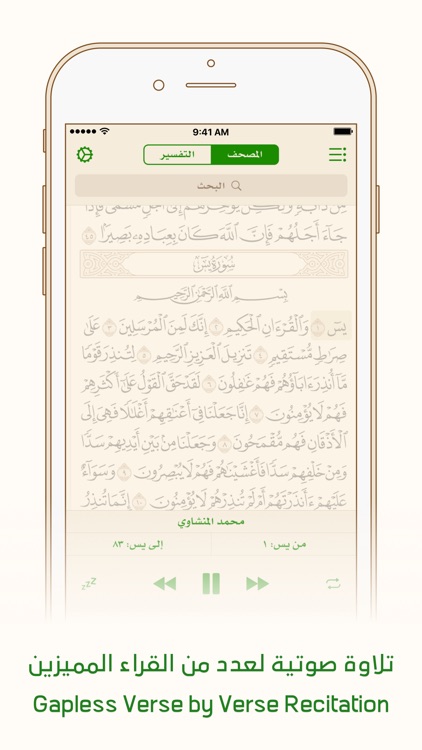 9:41 AM
المصحف
التفسير
البحث
مِن دَآبَّةٍ وَلَٰكِن يُؤَخِّرُهُمْ إِلَىٰٓ أَجَلٍ مُّسَمًّى فَإِذَا
جَآءَ أَجَلُهُمْ فَإِنَّ ٱللَّهَ كَانَ بِعِبَادِهِۦ بَصِيرًۢا ٤٥
سُورَةُ يسٓ
بِسْمِ ٱللَّهِ ٱلرَّحْمَٰنِ ٱلرَّحِيمِ
يسٓ ١ وَٱلْقُرْءَانِ ٱلْحَكِيمِ ٢ إِنَّكَ لَمِنَ ٱلْمُرْسَلِينَ ٣ عَلَىٰ
صِرَٰطٍ مُّسْتَقِيمٍ ٤ تَنزِيلَ ٱلْعَزِيزِ ٱلرَّحِيمِ ٥ لِتُنذِرَ قَوْمًا
مَّآ أُنذِرَ ءَابَآؤُهُمْ فَهُمْ غَٰفِلُونَ ٦ لَقَدْ حَقَّ ٱلْقَوْلُ عَلَىٰٓ أَكْثَرِهِمْ
فَهُمْ لَا يُؤْمِنُونَ ٧ إِنَّا جَعَلْنَا فِىٓ أَعْنَٰقِهِمْ أَغْلَٰلًا فَهِىَ إِلَى
ٱلْأَذْقَانِ فَهُم مُّقْمَحُونَ ٨ وَجَعَلْنَا مِنۢ بَيْنِ أَيْدِيهِمْ سَدًّا
وَمِنْ خَلْفِهِمْ سَدًّا فَأَغْشَيْنَٰهُمْ فَهُمْ لَا يُبْصِرُونَ ٩ وَسَوَآءٌ
عَلَيْهِمْ ءَأَنذَرْتَهُمْ أَمْ لَمْ تُنذِرْهُمْ لَا يُؤْمِنُونَ ١٠ إِنَّمَا تُنذِرُ
محمد المنشاوي
من يس: ١
إلى يس: ٨٣
zzZ
تلاوة صوتية لعدد من القراء المميزين
Gapless Verse by Verse Recitation